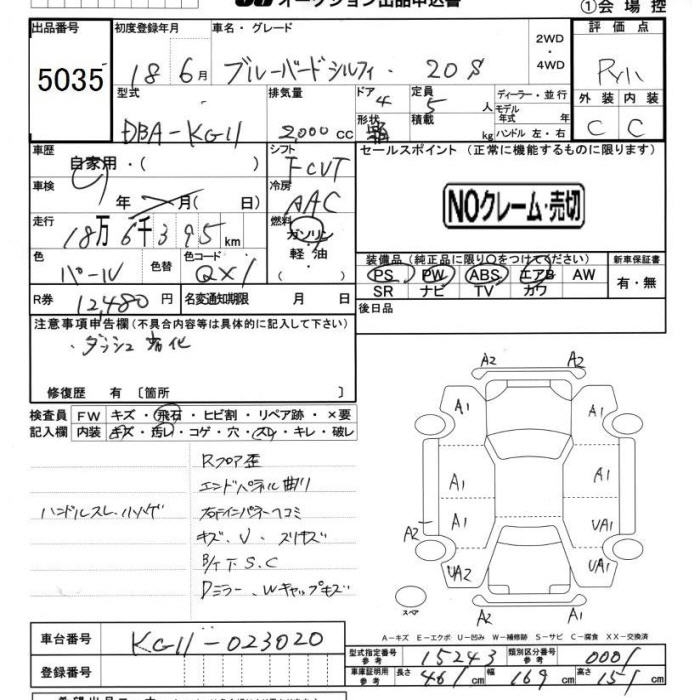 オークション出品申込書
①会場控
出品番号 初度登録年月 車名・グレード 2WD・4WD 評価点
5035 18 6月 ブルーバードシルフィ・20S
型式 排気量 ドア 4 定員 5人 ディーラー・並行 外装 内装
DBA-KG11 2,000cc 形状 積載 kg モデル年式 年 ハンドル 左・右 C C
車歴 自家用・( ) シフト FCVT セールスポイント(正常に機能するものに限ります)
車検 年 月( 日) 冷房 AAC
NOクレーム・売切
走行 18万6千395km 燃料 ガソリン・軽油・( )
色 パール 色替 色コード QX1
装備品(純正品に限り○をつけてください) 新車保証書
PS PW ABS エアB AW 有・無
SR ナビ TV カワ
R券 12,480円 名変通知期限 月 日 後日品
注意事項申告欄(不具合内容等は具体的に記入して下さい)
・ダッシュ劣化
修復歴 有〔箇所 〕
検査員 FW キズ・飛石・ヒビ割・リペア跡・×要
記入欄 内装 キズ・汚レ・コゲ・穴・スレ・キレ・破レ
Rフロア歪
エンドパネル曲り
ハンドルスレ、ハゲ
キズ、V、スリキズ
B/下S.C
Dミラー、Wキャップキズ
A2 A2
A1 A1
A1 A1
A2 A1 UA1
UA2 UA1
スペア A2 A1
A-キズ E-エクボ U-凹み W-補修跡 S-サビ C-腐食 XX-交換済
車台番号 KG11-023020
型式指定番号 参考 15243 類別区分番号 参考 0001
登録番号 車庫証明用 参考 長さ 461cm 幅 169cm 高さ 151cm